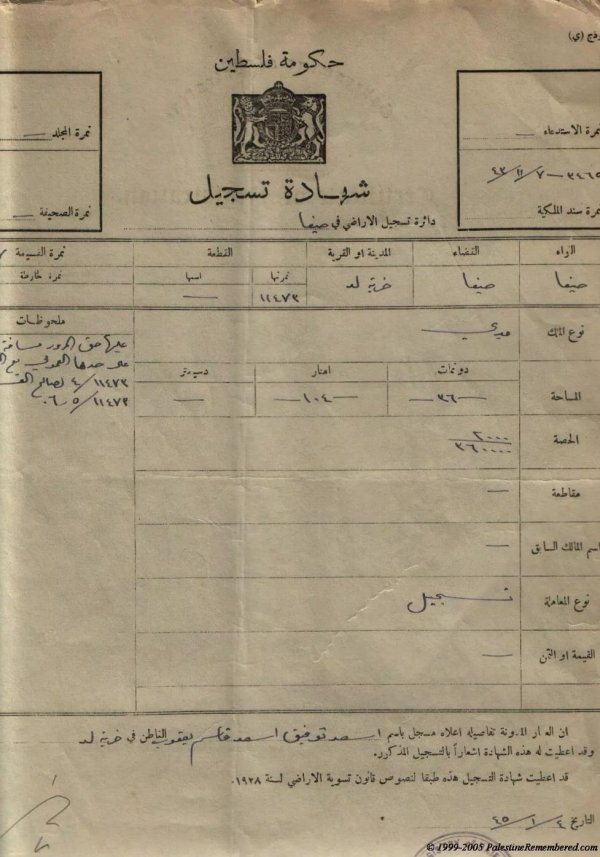 حكومة فلسطين
نمرة الاستدعاء —
٣٤٦٥ — ٤٣/١١/٧
نمرة سند الملكية
نمرة المجلد —
نمرة الصحيفة —
شهادة تسجيل
دائرة تسجيل الاراضي في حيفا
اللواء القضاء المدينة او القرية القطعة نمرة القسيمة
نمرتها اسمها نمرة خارطة
حيفا حيفا خربة لد ١١٤٧٣ —
نوع الملك ميري
المساحة
دونمات امتار دسيمتر
—٣٦— —١٠٤— —
الحصة
٢٠٠٠
٣٦٠٠٠٠
مقاطعة —
اسم المالك السابق —
نوع المعاملة تسجيل
القيمة او الثمن —
ملحوظات
عليها حق المرور مسافة
على حدها
١١٤٧٣/٤ لصالح
١١٤٧٣/٥ و ٦٠
ان العقار المدونة تفاصيله اعلاه مسجل باسم اسعد توفيق اسعد قاسم يعقوب القاطن في خربة لد
وقد اعطيت له هذه الشهادة اشعاراً بالتسجيل المذكور.
قد اعطيت شهادة التسجيل هذه طبقا لنصوص قانون تسوية الاراضي لسنة ١٩٢٨.
التاريخ ٤/١/٤٥
© 1999-2005 PalestineRemembered.com